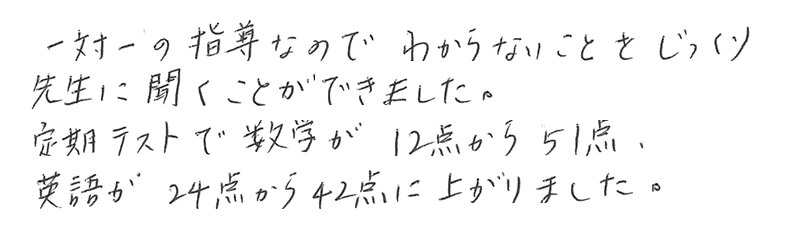 一対一の指導なので わからないことをじっくり
先生に聞くことができました。
定期テストで数学が 12点から51点、
英語が 24点から42点に上がりました。